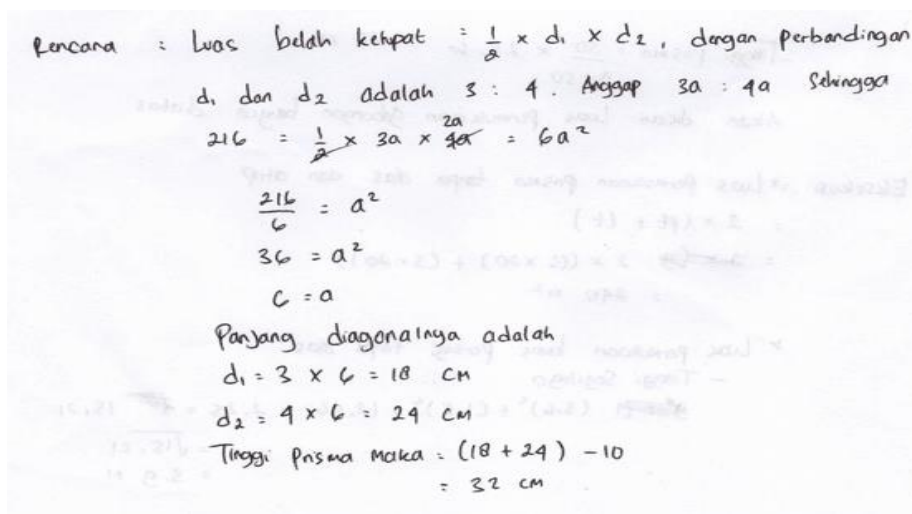 Rencana : Luas belah ketupat : 1/2 x d1 x d2, dengan Perbandingan
d1 dan d2 adalah 3 : 4. Anggap 3a : 4a Sehingga
216 = 1/2 x 3a x 4a 2a = 6a²
216/6 = a²
36 = a²
6 = a
Panjang diagonalnya adalah
d1 = 3 x 6 = 18 CM
d2 = 4 x 6 = 24 CM
Tinggi Prisma Maka = (18 + 24) - 10
= 32 CM